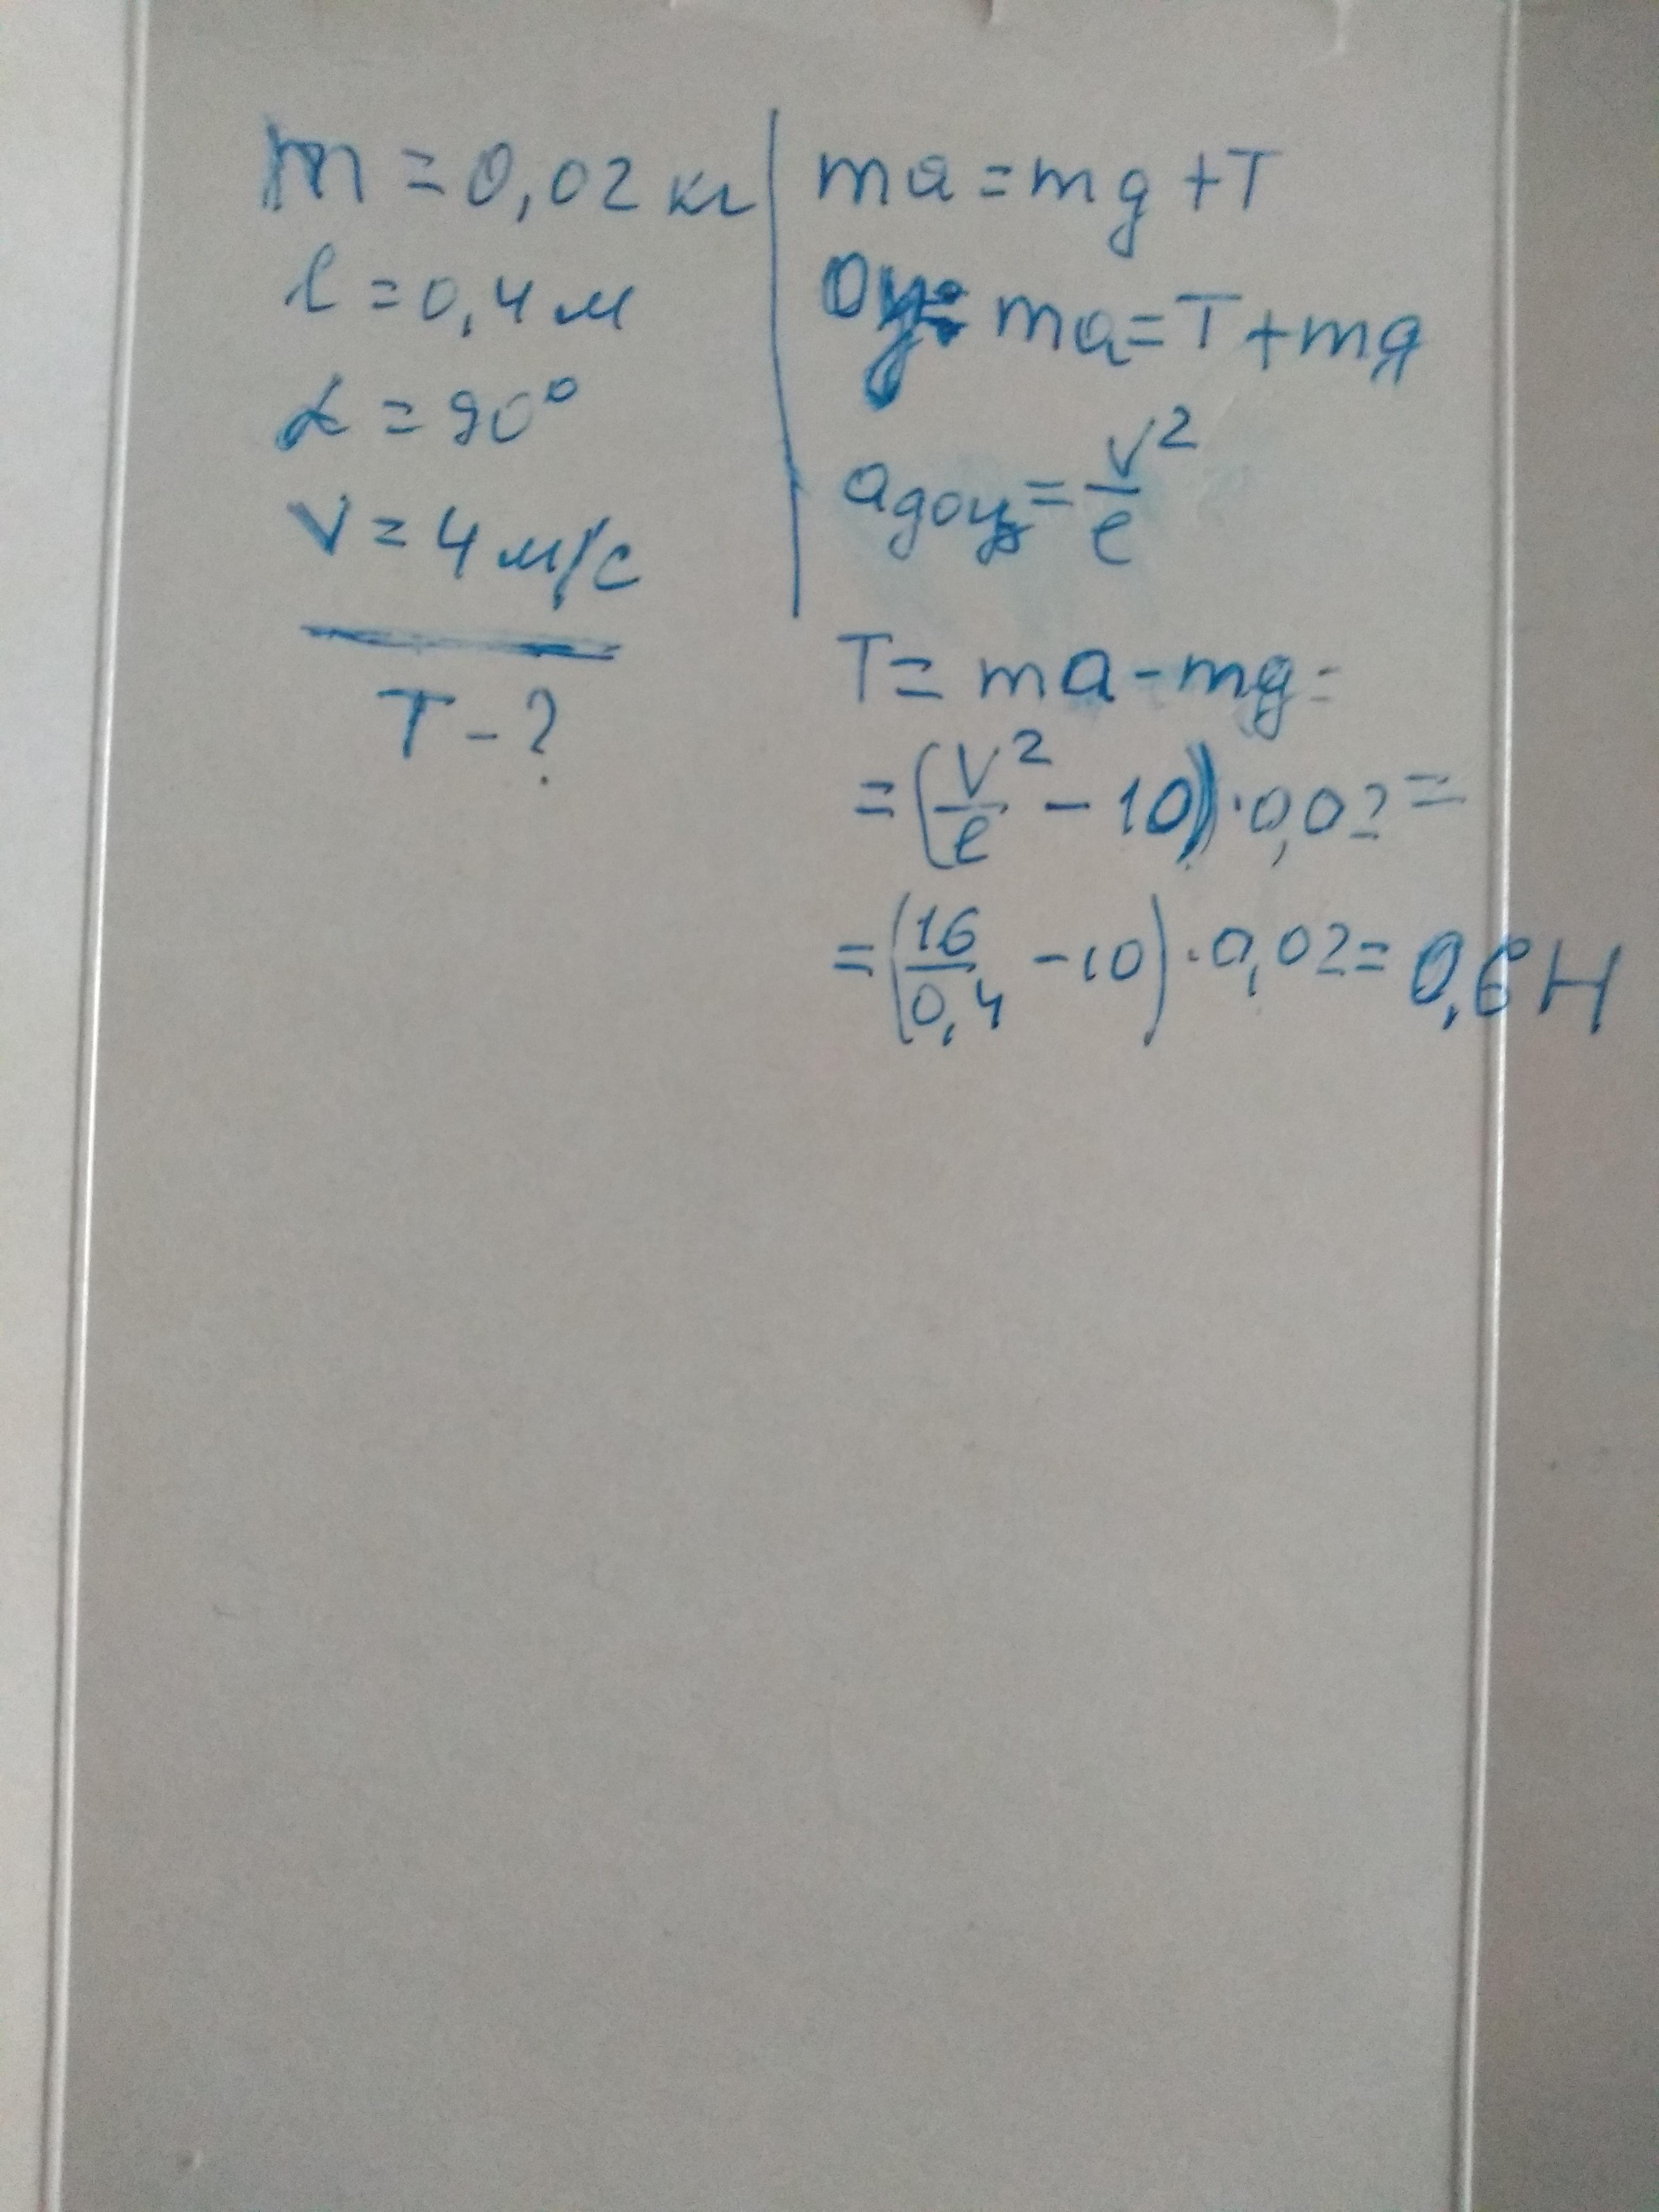 m = 0,02 кг
l = 0,4 м
α = 90°
V = 4 м/с
T - ?
ma = mg + T
Oy: ma = T + mg
aдоц = V²/l
T = ma - mg =
= (V²/l - 10) · 0,02 =
= (16/0,4 - 10) · 0,02 = 0,6 Н